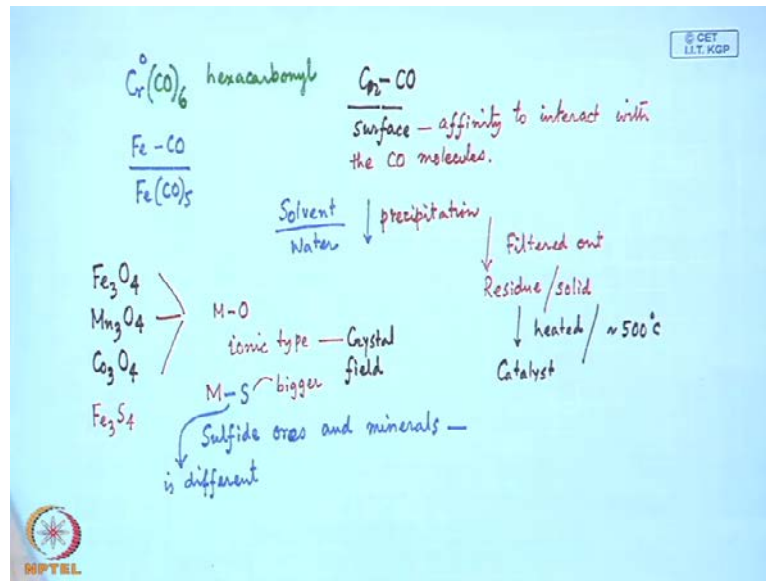 © CET
I.I.T. KGP
Cr⁰(CO)₆ hexacarbonyl
Cr-CO
surface — affinity to interact with
the CO molecules.
Fe-CO
Fe(CO)₅
Solvent
Water
precipitation
Filtered out
Residue / solid
heated / ~500°C
Catalyst
Fe₃O₄
Mn₃O₄
Co₃O₄
Fe₃S₄
M-O
ionic type — Crystal
field
M-S bigger
Sulfide ores and minerals —
is different
NPTEL